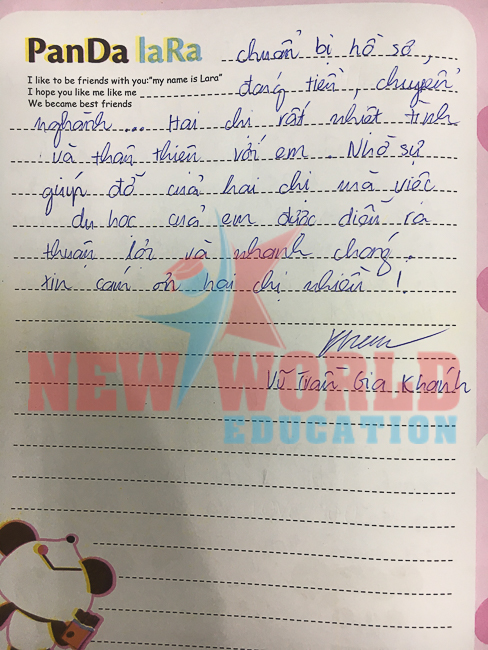 PanDa laRa
chuẩn bị hồ sơ,
I like to be friends with you:"my name is Lara"
I hope you like me like me
We became best friends
đóng tiền, chuyển
nghành... Hai chị rất nhiệt tình
và thân thiện với em. Nhờ sự
giúp đỡ của hai chị mà việc
du học của em được diễn ra
thuận lợi và nhanh chóng.
xin cảm ơn hai chị nhiều!
Vũ Trần Gia Khánh
NEW WORLD
EDUCATION